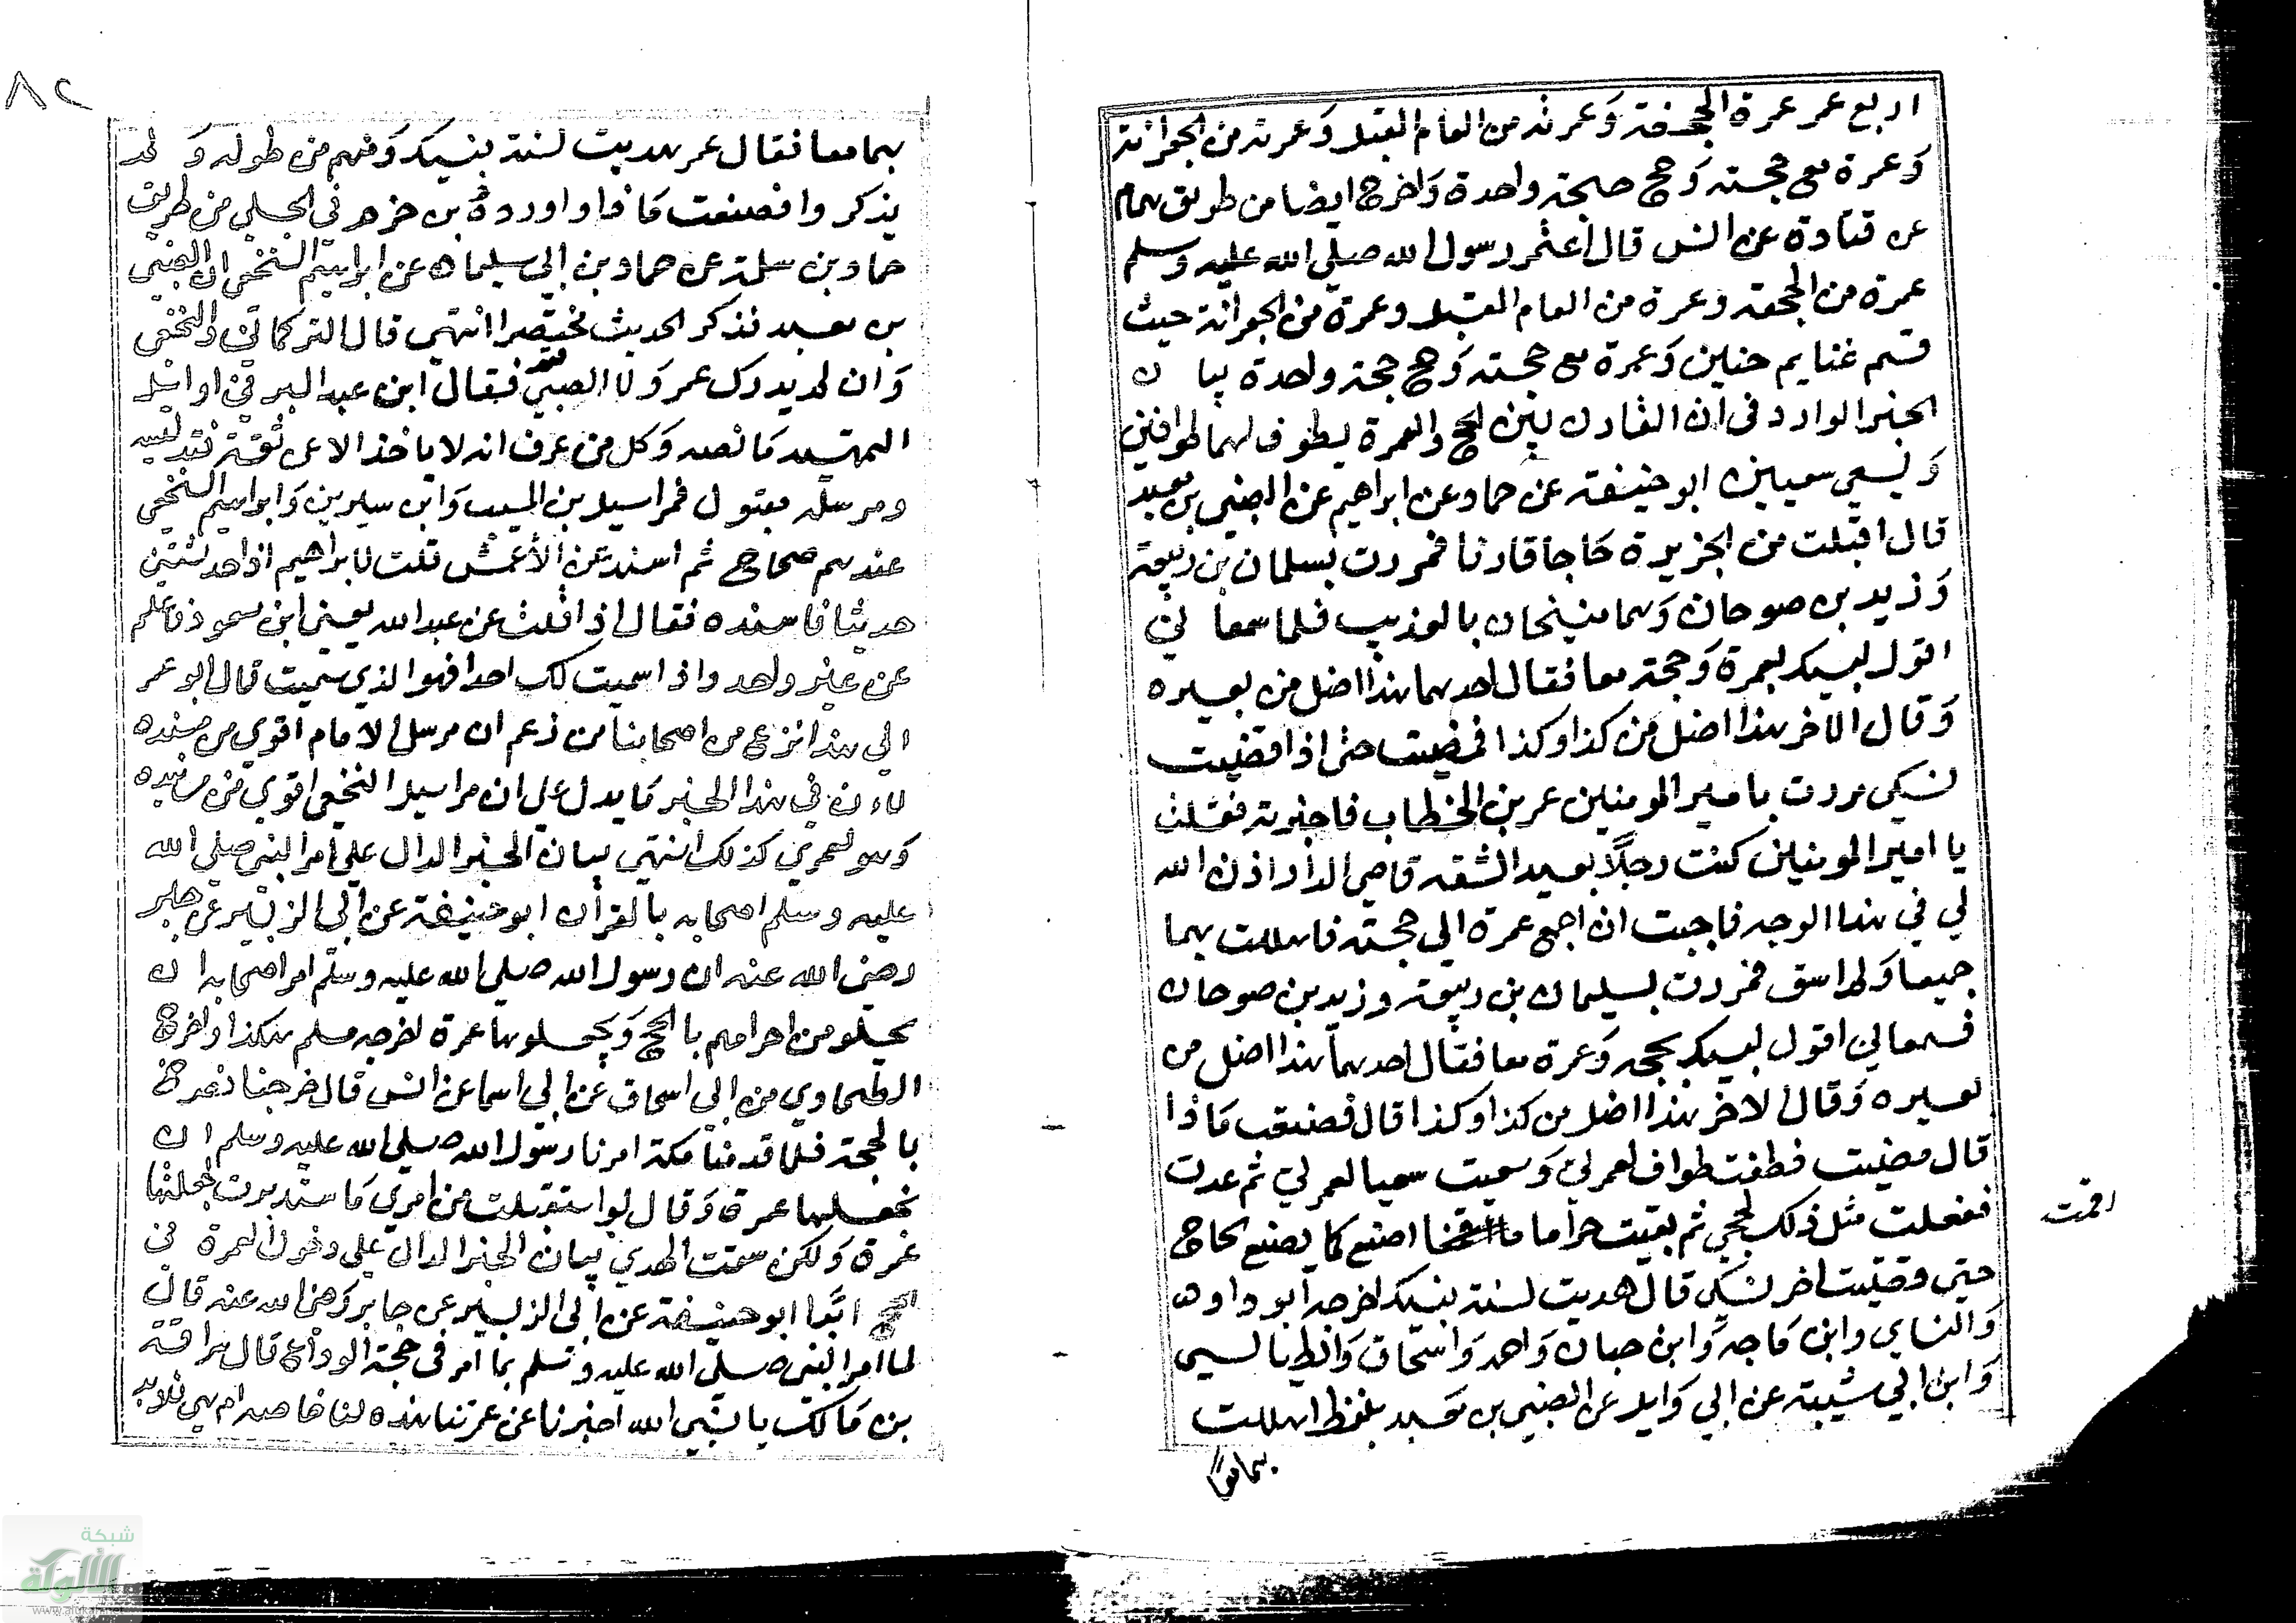 اربع عمر عمرة الجحفة وعمرته من العام المقبل وعمرته من الجعرانة
وعمرة مع حجته وحج حجة واحدة واخرج ايضا من طريق همام
عن قتادة عن انس قال اعتمر رسول الله صلى الله عليه وسلم
عمرة من الجحفة وعمرة من العام المقبل وعمرة من الجعرانة حيث
قسم غنايم حنين وعمرة مع حجته وحج حجة واحدة بيان
الخبر الوارد في ان القارن بين الحج والعمرة يطوف لهما طوافين
ويسعي سعيين ابو حنيفة عن حماد عن ابراهيم عن الصبي بن معبد
قال اقبلت من الجزيرة حاجا قارنا فمررت بسلمان بن ربيعة
وزيد بن صوحان وهما منيخان بالعذيب فلما سمعا ني
اقول لبيك بعمرة وحجة معا فقال احدهما هذا اضل من بعيره
وقال الاخر هذا اضل من كذا وكذا فمضيت حتى اذا قضيت
نسكي مررت بامير المومنين عمر بن الخطاب فاخبرته فقلت
يا امير المومنين كنت رجلا بعيد الشقة قاصي الدار اذن الله
لي في هذا الوجه فاحببت ان اجمع عمرة الي حجة فاهللت بهما
جميعا ولم اسق فمررت بسليمان بن ربيعة وزيد بن صوحان
فسمعاني اقول لبيك بحجة وعمرة معا فقال احدهما هذا اضل من
بعيره وقال الاخر هذا اضل من كذا وكذا قال فصنعت ماذا
قال مضيت فطفت طواف لعمرتي وسعيت سعيا لعمرتي ثم عدت
ففعلت مثل ذلك لحجي ثم بقيت حراما ما اصنع كما يصنع الحاج
اقمت
حتى قضيت اخر نسكي قال هديت لسنة نبيك اخرجه ابو داود
والنساي وابن ماجه وابن حبان واحمد واسحاق والطيالسي
وابن ابي شيبة عن ابي وايل عن الصبي بن معبد بلفظ اهللت
بهما معا
٨٢
بهما معا فقال عمر هديت لسنة نبيك ومنهم من طوله ولم
يذكروا فصنعت ماذا واورده بن حزم في المحلي من طريق
حماد بن سلمة عن حماد بن ابي سليمان عن ابراهيم النخعي ان الصبي
بن معبد فذكر الحديث مختصرا انتهي قال التركماني والنخعي
وان لم يدرك عمر ولا الصبي فقد قال ابن عبد البر في اوائل
التمهيد ما نصه وكل من عرف انه لا ياخذ الا عن ثقة فتدليسه
ومرسله مقبول فمراسيل بن المسيب وابن سيرين وابراهيم النخعي
عندهم صحاح ثم اسند عن الاعمش قلت لابراهيم اذا حدثتني
حديثا فاسنده فقال اذا قلت عن عبد الله يعني ابن مسعود فاعلم
عن غير واحد واذا سميت لك احدا فهو الذي سميت قال ابو عمر
الي هذا نزع من اصحابنا من زعم ان مرسل الامام اقوي من مسنده
لان في هذا الخبر ما يدل علي ان مراسيل النخعي اقوي من مسانيده
وهو لعمري كذلك انتهي بيان الخبر الدال علي امر النبي صلى الله
عليه وسلم اصحابه بالقران ابو حنيفة عن ابي الزبير عن جابر
رضي الله عنه ان رسول الله صلى الله عليه وسلم امر اصحابه ان
يحلو من احرامهم بالحج ويجعلوها عمرة اخرجه مسلم هكذا واخرج
الطحاوي من ابي اسحاق عن ابي اسما عن انس قال خرجنا نصرخ
بالحجة فلما قدمنا مكة امرنا رسول الله صلى الله عليه وسلم ان
نجعلها عمرة وقال لو استقبلت من امري ما استدبرت لجعلتها
عمرة ولكن سقت الهدي بيان الخبر الدال على دخول العمرة في
الحج ابدا ابو حنيفة عن ابي الزبير عن جابر رضي الله عنه قال
لما امر النبي صلى الله عليه وسلم بما امر في حجة الوداع قال سراقة
بن مالك يا نبي الله اخبرنا عن عمرتنا هذه لنا خاصة ام هي للابد
شبكة
الألوكة